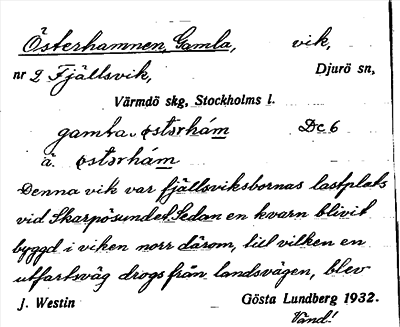 Österhamnen, Gamla, vik,
nr 2 Fjällsvik, Djurö sn,
Värmdö skg, Stockholms l.
gamla, østərhám Dc 6
ä. østərhám
Denna vik var fjällsviksbornas lastplats
vid Skarpösundet. Sedan en kvarn blivit
byggd i viken norr därom, till vilken en
utfartsväg drogs från landsvägen, blev
J. Westin Gösta Lundberg 1932.
Vänd!